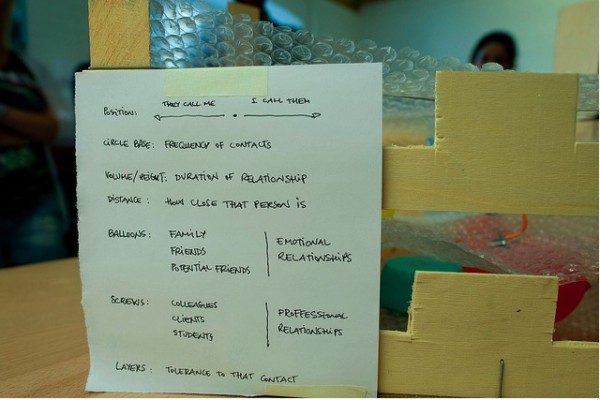 POSITION: THEY CALL ME I CALL THEM
CIRCLE BASE: FREQUENCY OF CONTACTS
VOLUME/HEIGHT: DURATION OF RELATIONSHIP
DISTANCE: HOW CLOSE THAT PERSON IS
BALLOONS: FAMILY
FRIENDS
POTENTIAL FRIENDS
EMOTIONAL
RELATIONSHIPS
SCREWS: COLLEAGUES
CLIENTS
STUDENTS
PROFFESSIONAL
RELATIONSHIPS
LAYERS: TOLERANCE TO THAT CONTACT